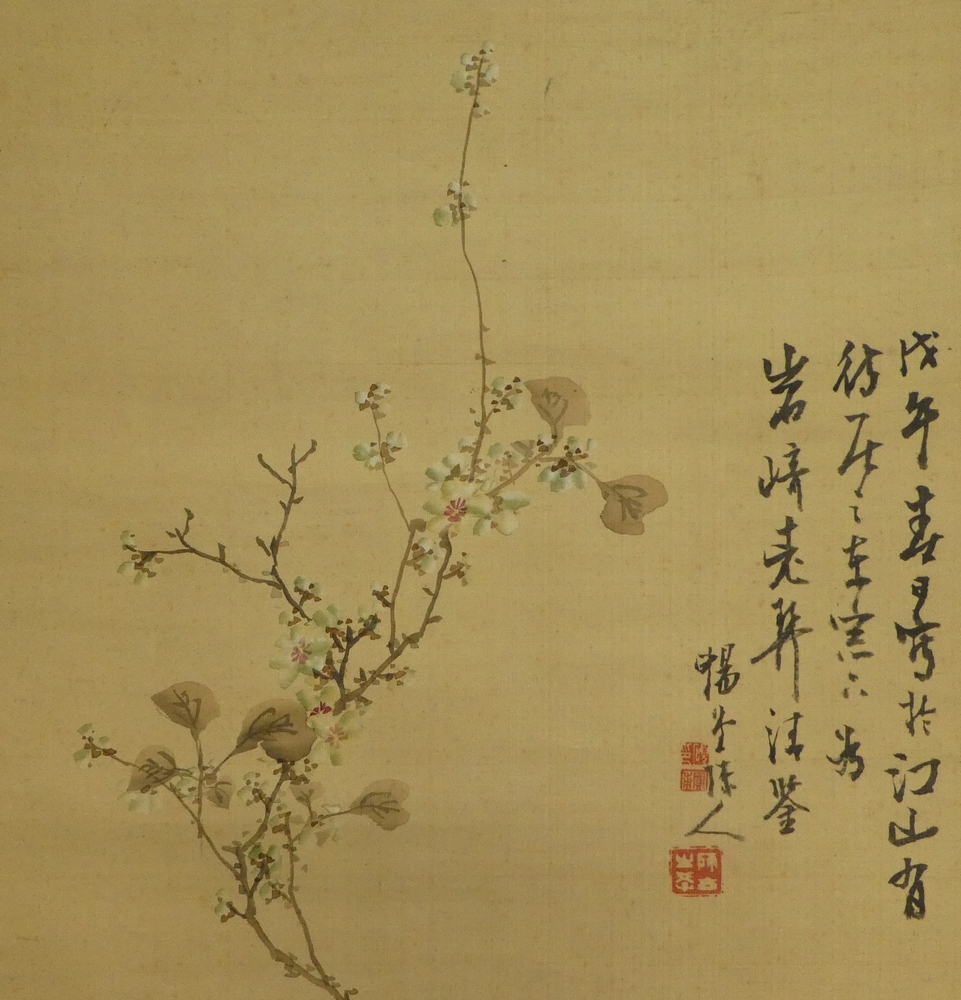 戊午春日寫於江山有
待居之東窓下為
岩崎老契清鑒
暢堂陳人